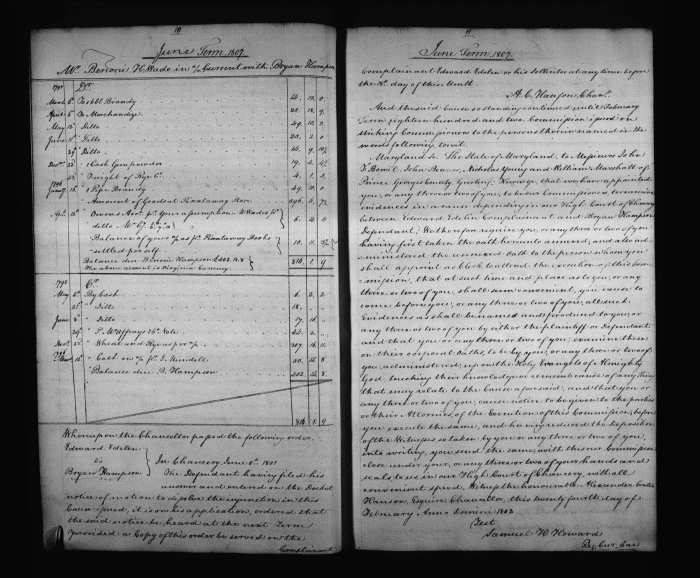 10
June Term 1807.
Mr. Benoni H. Wade in a/Current with Bryan Hampson
1792 Dr.
March To Brandy
April To Merchandize
May 10th Ditto 49. 10. 3.
June 11th Ditto 25. 2. 0
Ditto
1 Cask Gunpowder 19. 4.
22 Freight of Rye &c. 4. 1. 3.
1 Pipe Brandy 49. 10. 0
Amount of Goods at Piscataway Store
6. 2. 2
ditto
Balance of your a/c as pr. Piscataway Books
settled
Balance due Bennie Hampson £402.14.8
The above account is Virginia Currency. 816. 1. 9
1792 Cr.
May By Cash 6. 2. 2
Ditto 18.
June 8 Ditto 17. 16.
Note 44. 2.
Wheat and Rye as per a/c 307. 16. 11.
Cash on a/c pr. J. Rundell 20. 14. 8
Balance due B. Hampson 402. 14. 8.
816. 1. 9
Whereupon the Chancellor passed the following order.
Edward Edelen
vs
Bryan Hampson
In Chancery, June 6th 1801
The Defendant having filed his
answer and entered on the Docket
notice of motion to dissolve the injunction in this
Cause issued, it is on his application, ordered that
the said notice be heard at the next Term
provided a Copy of this order be served on the
Complainant
11
June Term 1807.
Complainant Edward Edelen or his Solicitor at any time before
the 18th day of this Month.
A. C. Hanson Chanr.
And the said Cause so standing continued until February
Term eighteen hundred and two Commission issued on
striking Commissioners to the persons therein named in the
words following to wit.
Maryland Sc. The State of Maryland, to Messieurs John
F. Bowie, John Nicholas Young and William Marshall of
Prince Georges County Greeting: Know ye that we have appointed
you, or any three or two of you, to be our Commissioners to examine
evidences in a cause depending in our High Court of Chancery
between Edward Edelen Complainant and Bryan Hampson
Defendant; We therefore require you, or any three or two of you
having first taken the oath hereunto annexed, and also ad-
-ministered the annexed Oath to the person whom you
shall appoint as clerk to attend the execution of this Com-
-mission, that at such time and place as to you, or any
three or two of you, shall seem convenient, you cause to
come before you, or any three or two of you, all such
Evidences as shall be named and produced to you, or
any three or two of you by either the plaintiff or Defendant,
and that you or any three or two of you, examine them
on their corporal Oaths, to be by you, or any three or two of
you administered, upon the Holy Evangels of Almighty
God, touching their knowledge or remembrance of any thing
that may relate to the Cause aforesaid; and that you or
any three or two of you, cause notice to be given to the parties
or their Attornies of the Execution of this Commission, before
you execute the same, and having reduced the Depositions
of the Witnesses so taken by you or any three or two of you,
into writing, you send the same, with this our Commission
close under your, or any three or two of your hands and
seals to us in our High Court of Chancery, with all
convenient speed. Witness the honourable Alexander Contee
Hanson Esquire Chancellor, this twenty fourth day of
February Anno Domini 1802
Test
Samuel H. Howard
Reg. Cur. Can